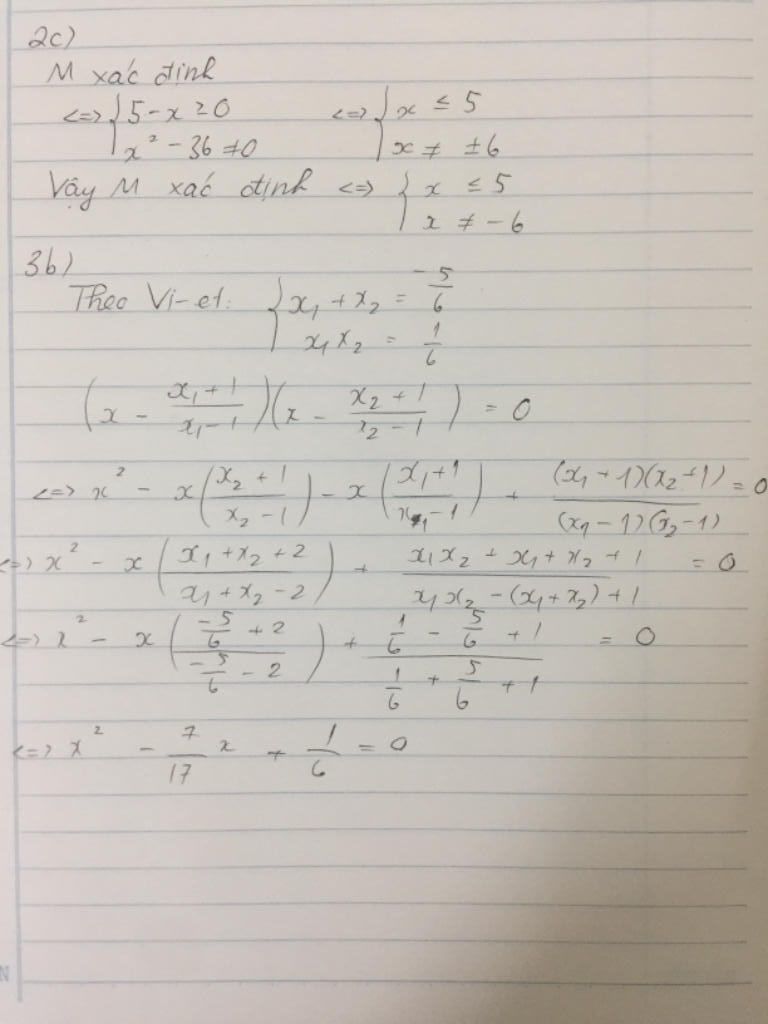 2c)
M xác định
<=> { 5 - x ≥ 0 <=> { x ≤ 5
x² - 36 ≠ 0 x ≠ ±6
Vậy M xác định <=> { x ≤ 5
x ≠ -6
3b)
Theo Vi-et: { x₁ + x₂ = -5/6
x₁x₂ = 1/6
(x - (x₁ + 1)/(x₁ - 1))(x - (x₂ + 1)/(x₂ - 1)) = 0
<=> x² - x((x₂ + 1)/(x₂ - 1)) - x((x₁ + 1)/(x₁ - 1)) + ((x₁ + 1)(x₂ + 1))/((x₁ - 1)(x₂ - 1)) = 0
<=> x² - x((x₁ + x₂ + 2)/(x₁ + x₂ - 2)) + (x₁x₂ + x₁ + x₂ + 1)/(x₁x₂ - (x₁ + x₂) + 1) = 0
<=> x² - x((-5/6 + 2)/(-5/6 - 2)) + (1/6 - 5/6 + 1)/(1/6 + 5/6 + 1) = 0
<=> x² - 7/17 x + 1/6 = 0